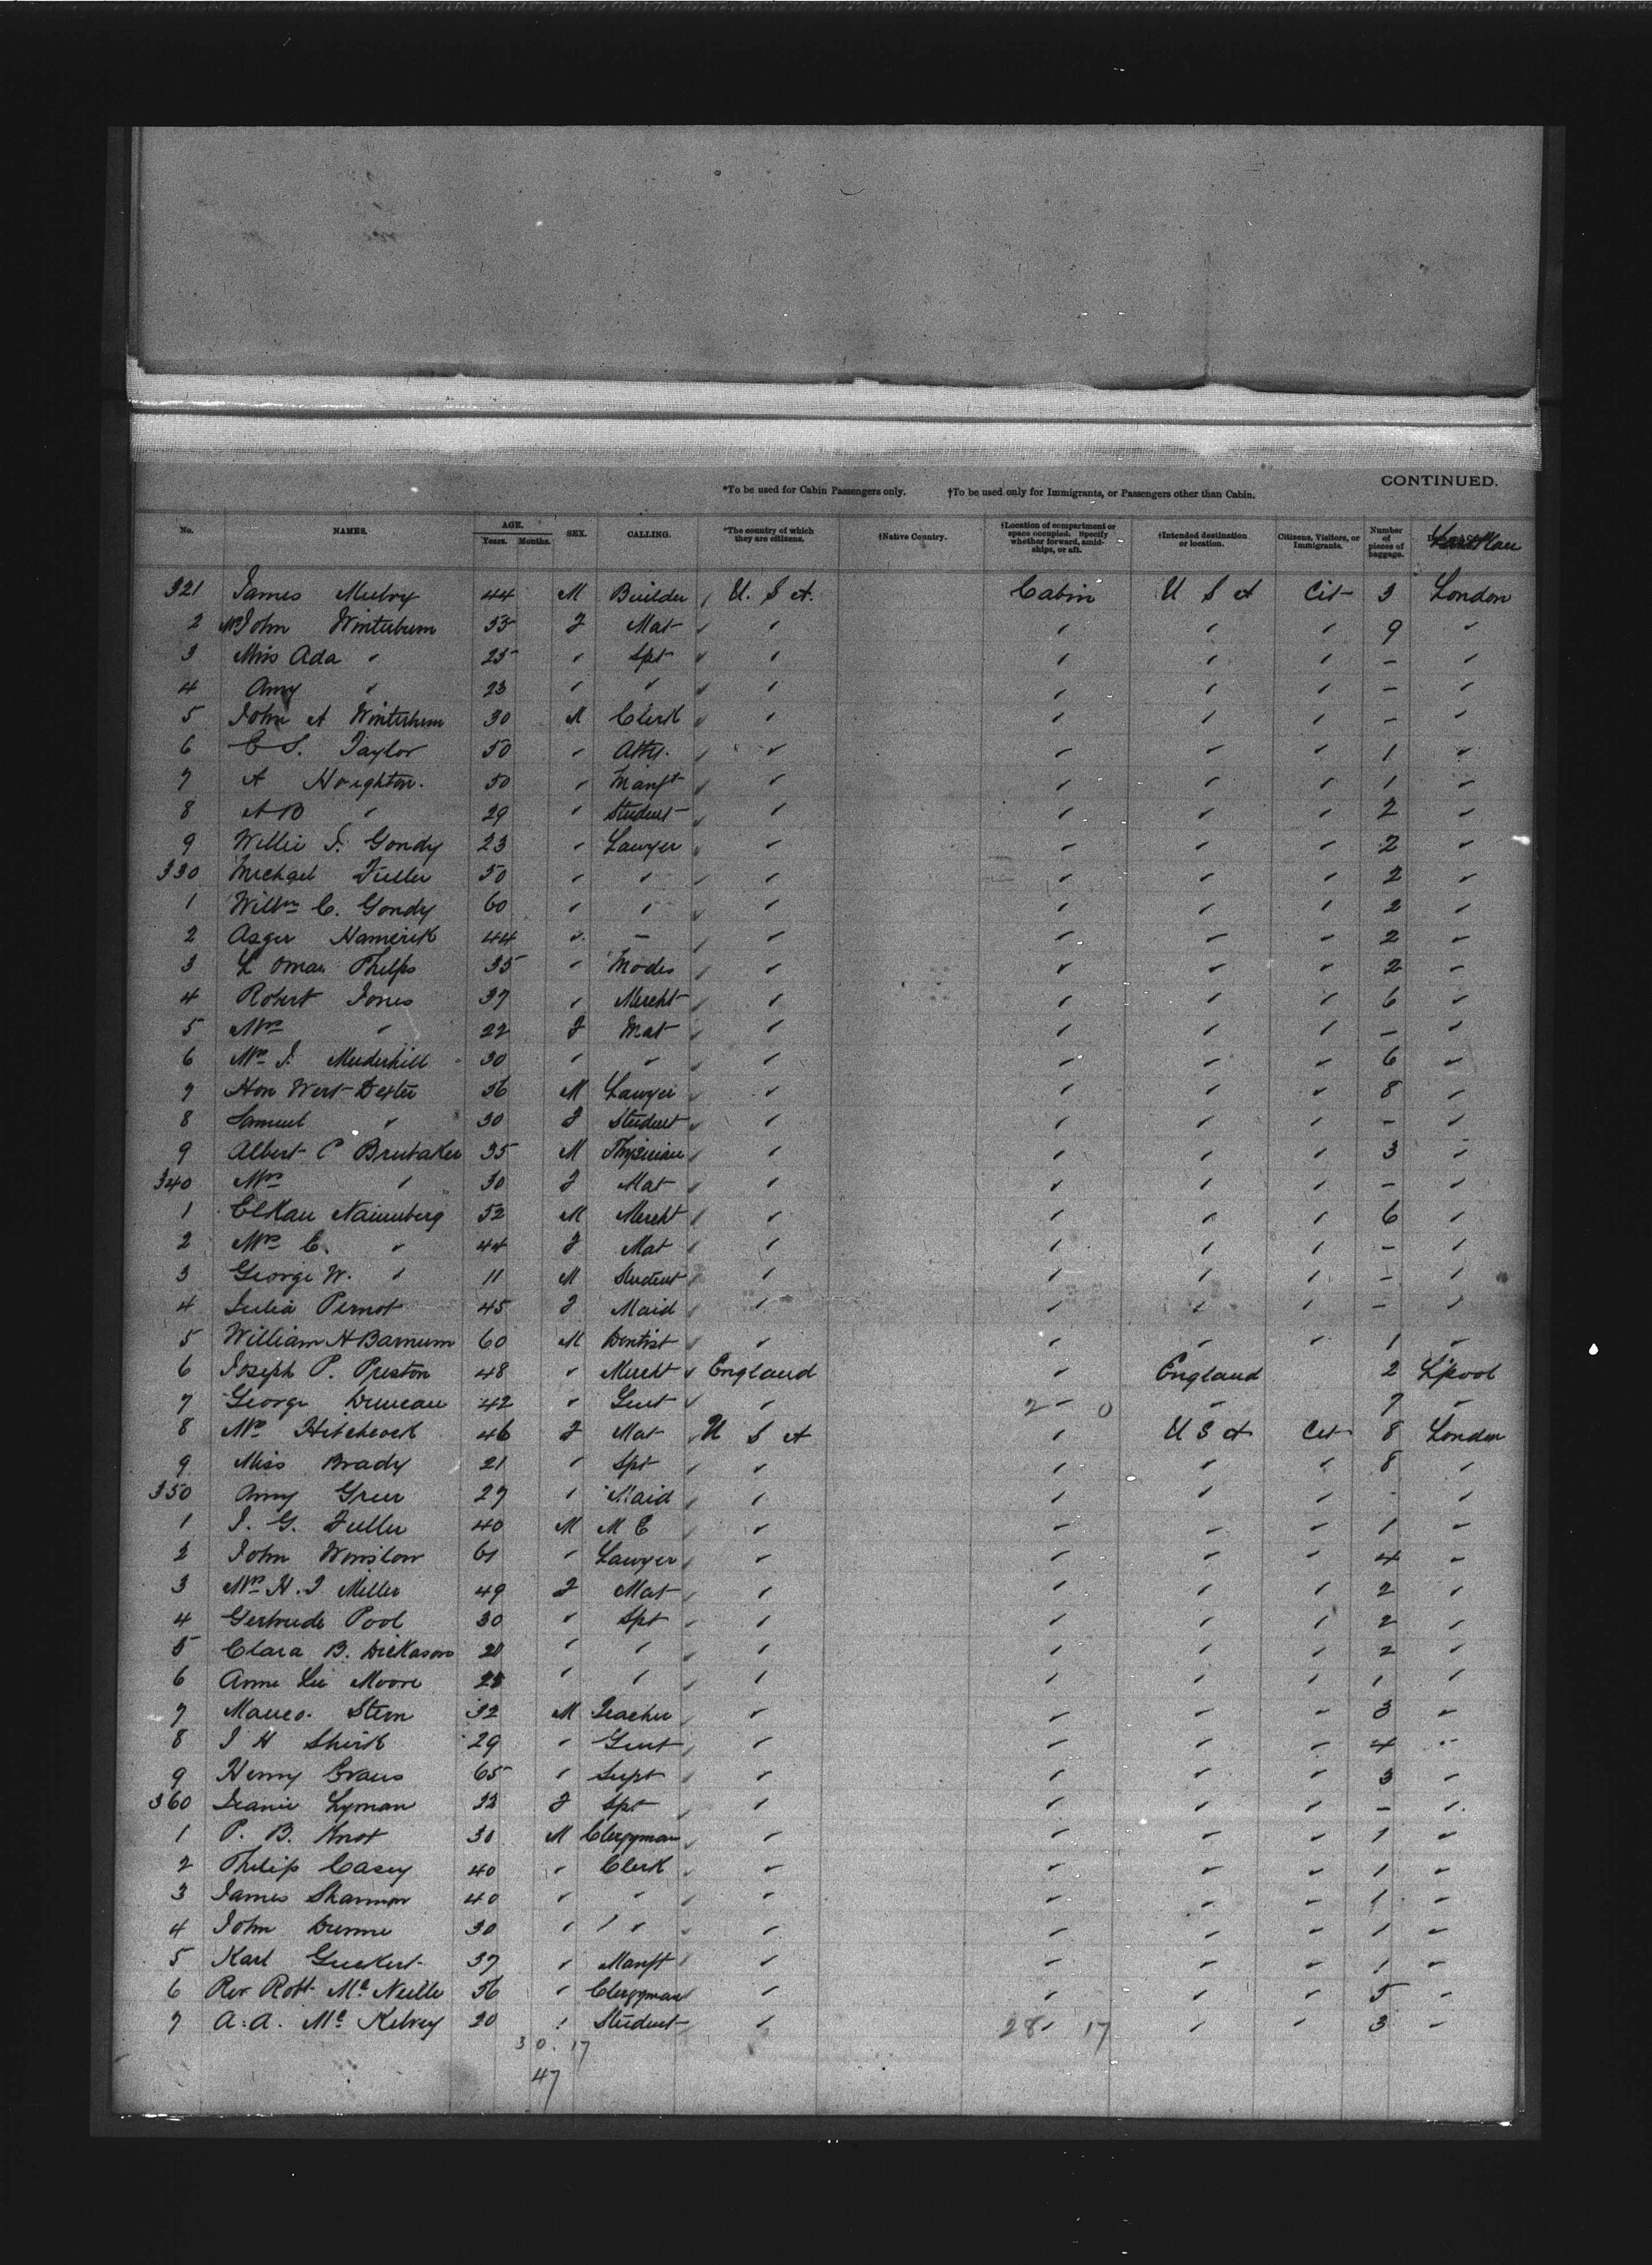 CONTINUED.
*To be used for Cabin Passengers only. †To be used only for Immigrants, or Passengers other than Cabin.
No. NAMES. AGE. Years. Months. SEX. CALLING. *The country of which they are citizens. †Native Country. †Location of compartment or space occupied. Specify whether forward, amidships, or aft. †Intended destination or location. Citizens, Visitors, or Immigrants. Number of pieces of baggage.
321 James 44 M Builder U. S A. Cabin U S A Cit 3 London
2 John Winterburn F Mat ✓ ✓ ✓ ✓ 9 ✓
3 Miss Ada " 25 " Spt ✓ ✓ ✓ ✓ – ✓
4 Amy " 23 " " ✓ ✓ ✓ ✓ – ✓
5 John A Winterburn 30 M Clerk ✓ ✓ ✓ ✓ – ✓
6 C S. Taylor 50 " Atty. ✓ ✓ ✓ ✓ 1 ✓
7 A Houghton. 50 " Manft ✓ ✓ ✓ ✓ 1 ✓
8 A B " 29 " Student ✓ ✓ ✓ ✓ 2 ✓
9 Willie S. Gondy 23 " Lawyer ✓ ✓ ✓ ✓ 2 ✓
330 Michael Fuller 50 " " ✓ ✓ ✓ ✓ 2 ✓
1 Willm C. Gondy 60 " " ✓ ✓ ✓ ✓ 2 ✓
2 Asger Hamerik 44 " – ✓ ✓ ✓ ✓ 2 ✓
3 L Phelps 35 " Modes ✓ ✓ ✓ ✓ 2 ✓
4 Robert Jones 37 " Mercht ✓ ✓ ✓ ✓ 6 ✓
5 Mrs " 22 F Mat ✓ ✓ ✓ ✓ – ✓
6 Mrs J. 30 " " ✓ ✓ ✓ ✓ 6 ✓
7 Hon Wert Dexter 56 M Lawyer ✓ ✓ ✓ ✓ 8 ✓
8 Samuel " 30 F Student ✓ ✓ ✓ ✓ – ✓
9 Albert C Brubaker 35 M Physician ✓ ✓ ✓ ✓ 3 ✓
340 Mrs " 30 F Mat ✓ ✓ ✓ ✓ – ✓
1 Elkan Naumberg 52 M Mercht ✓ ✓ ✓ ✓ 6 ✓
2 Mrs C. " 44 F Mat ✓ ✓ ✓ ✓ – ✓
3 George W. " 11 M Student ✓ ✓ ✓ ✓ – ✓
4 Julia Pernot 45 F Maid ✓ ✓ ✓ ✓ – ✓
5 William H Barnum 60 M Dentist ✓ ✓ ✓ ✓ 1 ✓
6 Joseph P. Preston 48 " Mercht England ✓ England 2 L'pool
7 George Duncan 42 " Gent ✓ 2 – 0 – 7 –
8 Mrs Hitchcock 46 F Mat U S A ✓ U S A Cit 8 London
9 Miss Brady 21 " Spt ✓ ✓ ✓ ✓ 8 ✓
350 Amy Greer 27 " Maid ✓ ✓ ✓ ✓ - ✓
1 J. G. Fuller 40 M M E ✓ ✓ ✓ ✓ 1 ✓
2 John Winslow 61 " Lawyer ✓ ✓ ✓ ✓ 4 ✓
3 Mrs H. J. Miller 49 F Mat ✓ ✓ ✓ ✓ 2 ✓
4 Gertrude Pool 30 " Spt ✓ ✓ ✓ ✓ 2 ✓
5 Clara B. Dickason 21 " " ✓ ✓ ✓ ✓ 2 ✓
6 Anne Lee Moore 28 " " ✓ ✓ ✓ ✓ 1 ✓
7 Stern 32 M Teacher ✓ ✓ ✓ ✓ 3 ✓
8 J H Shirk 29 " Gent ✓ ✓ ✓ ✓ 4 ✓
9 Henry Evans 65 " Supt ✓ ✓ ✓ ✓ 3 ✓
360 Jeanie Lyman 33 F Spt ✓ ✓ ✓ ✓ – ✓
1 P. B. Knox 30 M Clergyman ✓ ✓ ✓ ✓ 1 ✓
2 Philip Casey 40 " Clerk ✓ ✓ ✓ ✓ 1 ✓
3 James Shannon 40 " " ✓ ✓ ✓ ✓ 1 ✓
4 John Dunne 30 " " ✓ ✓ ✓ ✓ 1 ✓
5 Karl Guckert 37 " Manft ✓ ✓ ✓ ✓ 1 ✓
6 Rev Robt Mc Neille 56 " Clergyman ✓ ✓ ✓ ✓ 5 ✓
7 A. A. Mc Kelvey 20 " Student ✓ 28 17 ✓ ✓ 3 ✓
30. 17
47